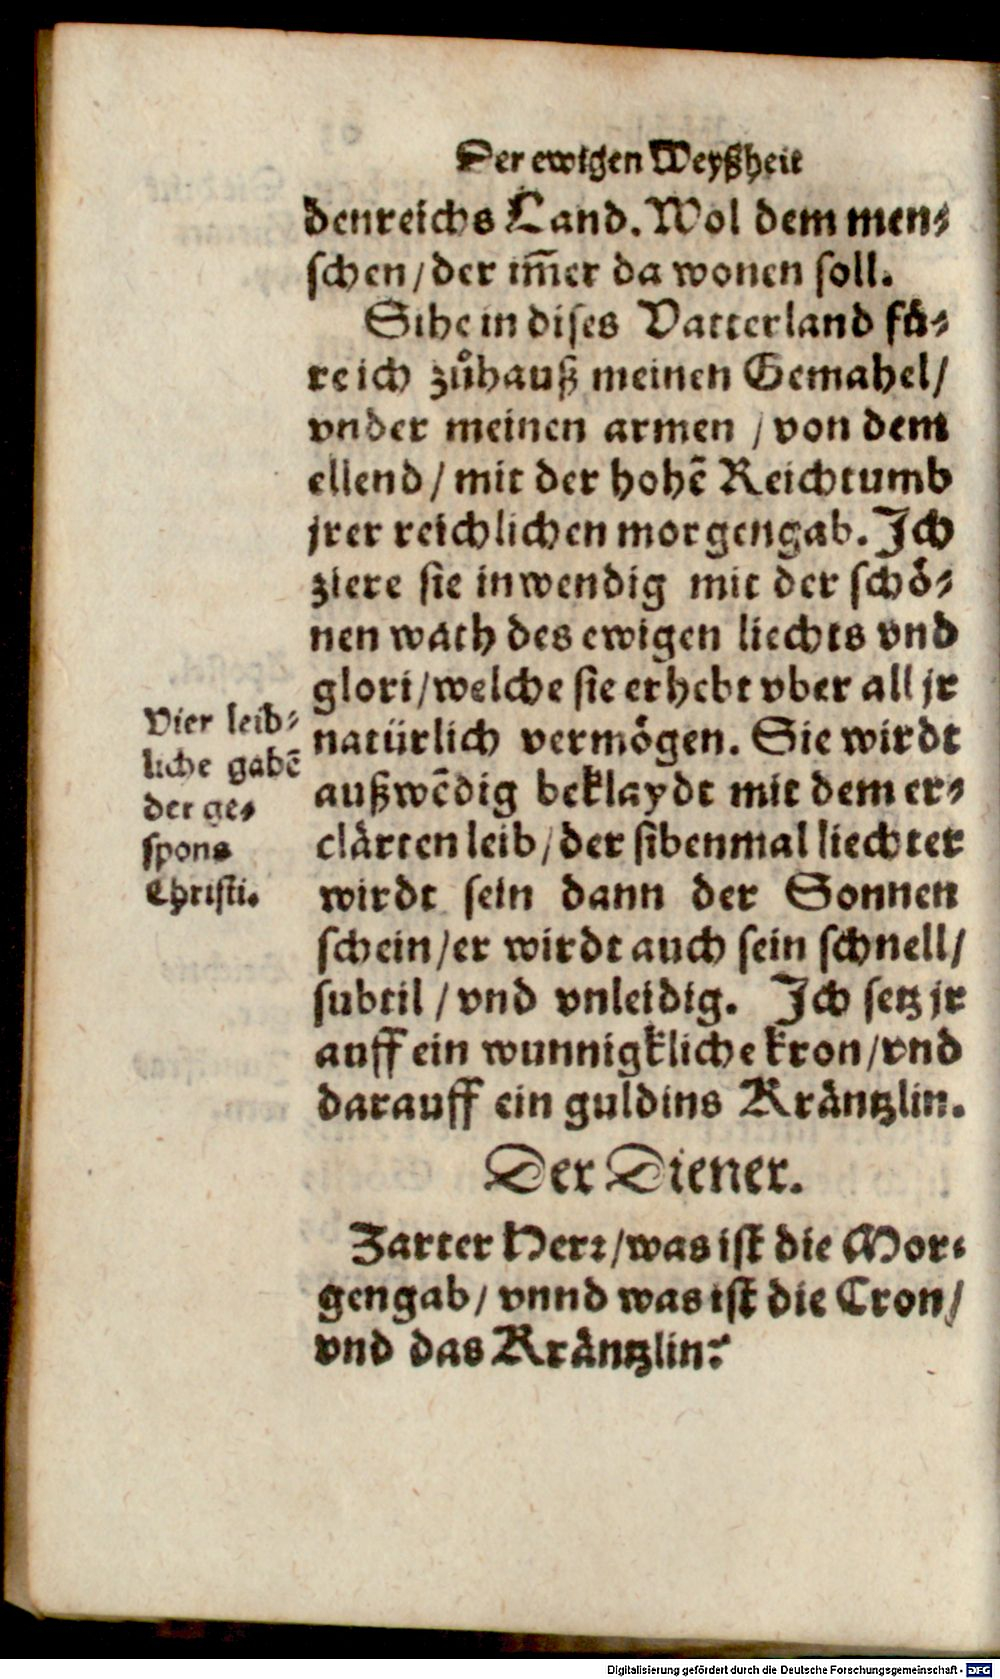 Der ewigen Weyßheit
denreichs Land. Wol dem men⸗
schen / der im̃er da wonen soll.
Sihe in dises Vatterland fü⸗
re ich zůhauß meinen Gemahel /
vnder meinen armen / von dem
ellend / mit der hohẽ Reichtumb
jrer reichlichen morgengab. Ich
ziere sie inwendig mit der schö⸗
nen wath des ewigen liechts vnd
glori / welche sie erhebt vber all jr
natürlich vermögen. Sie wirdt
außwẽdig beklaydt mit dem er⸗
clärten leib / der sibenmal liechter
wirdt sein dann der Sonnen
schein / er wirdt auch sein schnell /
subtil / vnd vnleidig. Ich setz jr
auff ein wunnigkliche kron / vnd
darauff ein guldins Kräntzlin.
Vier leib⸗
liche gabẽ
der ge⸗
spons
Christi.
Der Diener.
Zarter Herꝛ / was ist die Mor⸗
gengab / vnnd was ist die Cron /
vnd das Kräntzlin?
Digitalisierung gefördert durch die Deutsche Forschungsgemeinschaft - DFG